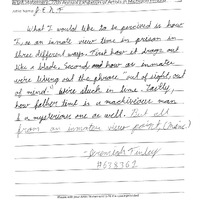 What I would like to be perceived is how
I, as an inmate view time in prison in
three different ways. First how it drags out
like a blade, Second, how as inmates
were living out the phrase "out of sight, out
of mind." We're stuck in time. Lastly,
how father time is a machiavesic man
& a mysterious one as well. But all
from an inmates view point, (mine)
-Jeremiah Finley
#638762